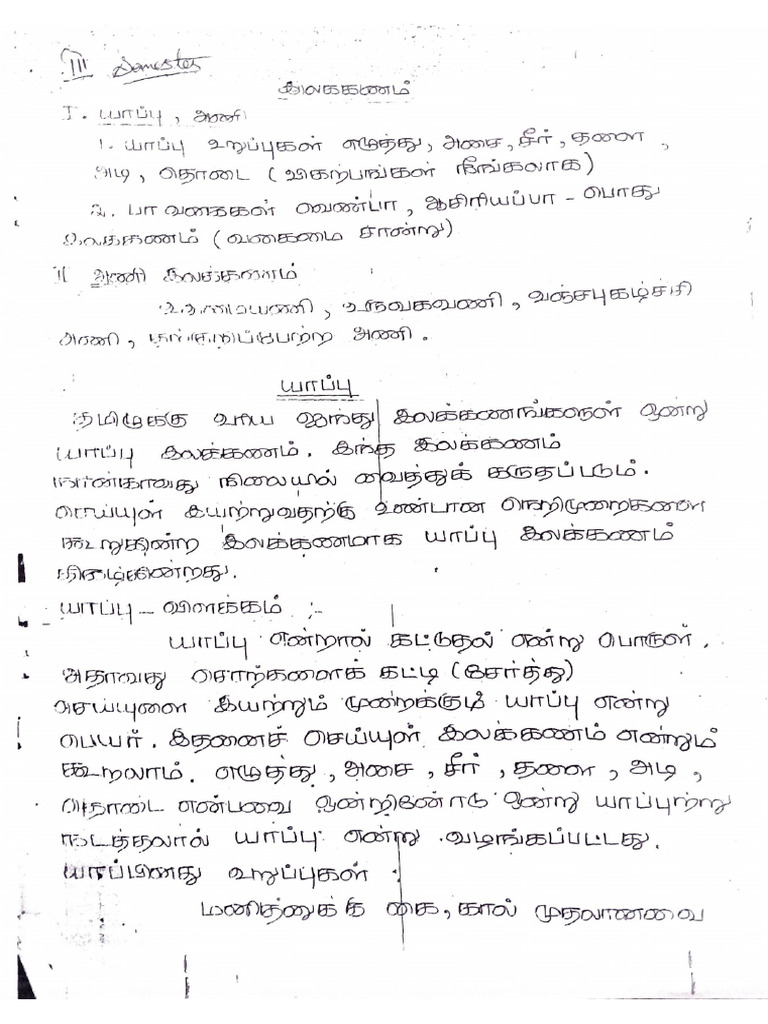 III Semester
இலக்கணம்
I. யாப்பு, அணி
1. யாப்பு உறுப்புகள் எழுத்து, அசை, சீர், தளை,
அடி, தொடை (விகற்பங்கள் நீங்கலாக)
2. பா வகைகள் வெண்பா, ஆசிரியப்பா - பொது
இலக்கணம் (வகைமை சான்று)
II அணி இலக்கணம்
உவமையணி, உருவகவணி, வஞ்சபுகழ்ச்சி
அணி, தற்குறிப்பேற்ற அணி.
யாப்பு
தமிழுக்கு உரிய ஐந்து இலக்கணங்களுள் ஒன்று
யாப்பு இலக்கணம். இந்த இலக்கணம்
நான்காவது நிலையில் வைத்துக் கருதப்படும்.
செய்யுள் இயற்றுவதற்கு உண்டான நெறிமுறைகளை
கூறுகின்ற இலக்கணமாக யாப்பு இலக்கணம்
திகழ்கின்றது.
யாப்பு - விளக்கம் :-
யாப்பு என்றால் கட்டுதல் என்று பொருள்.
அதாவது சொற்களைக் கட்டி (சேர்த்து)
செய்யுளை இயற்றும் முறைக்கும் யாப்பு என்று
பெயர். இதனைச் செய்யுள் இலக்கணம் என்றும்
கூறலாம். எழுத்து, அசை, சீர், தளை, அடி,
தொடை என்பவை ஒன்றினோடு ஒன்று யாப்புற்று
நடத்தலால் யாப்பு என்று வழங்கப்பட்டது.
யாப்பினது உறுப்புகள் :
மனிதனுக்கு கை, கால் முதலானவை